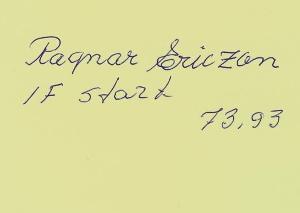 Ragnar Ericzon
IF start
73,93